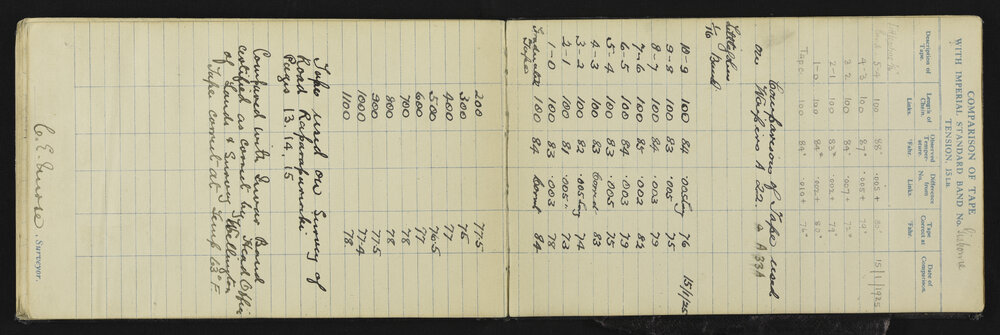 COMPARISON OF TAPE
WITH IMPERIAL STANDARD BAND No. Gisborne
TENSION, 15 LB.
Description of Tape. Length of Chain. Links. Observed Temperature. °Fahr. Difference from No. Links. Tape Correct at °Fahr. Date of Comparison.
5-4 100 88° .005+ 80° 15/1/1925
4-3 100 87° .005+ 79°
3-2 100 84° .007+ 72°
2-1 100 83° .002+ 79°
1-0 100 84° .002+ 80°
Tape 100 84° .019+ 76°
Comparison of Tape used
on Waipiro A 22 & A 33A
10-9 100 84 .005 long 76 15/1/25
9-8 100 83 .005 75
8-7 100 84 .003 79
7-6 100 85 .002 82
6-5 100 84 .003 79
5-4 100 83 .005 75
4-3 100 83 Correct 83
3-2 100 82 .005 long 74
2-1 100 81 .005 73
1-0 100 83 .003 78
Graduated Tape 100 84 Correct 84
200 77.5
300 76
400 77
500 76.5
600 77
700 78
800 78
900 77.5
1000 77.4
1100 78
Tape used on Survey of
Road Raparapaririki
Pegs 13. 14. 15
Compared with Invar Band
certified as correct by Head Office
of Lands & Survey Wellington
Tape correct at Temp 63° F.
Surveyor.